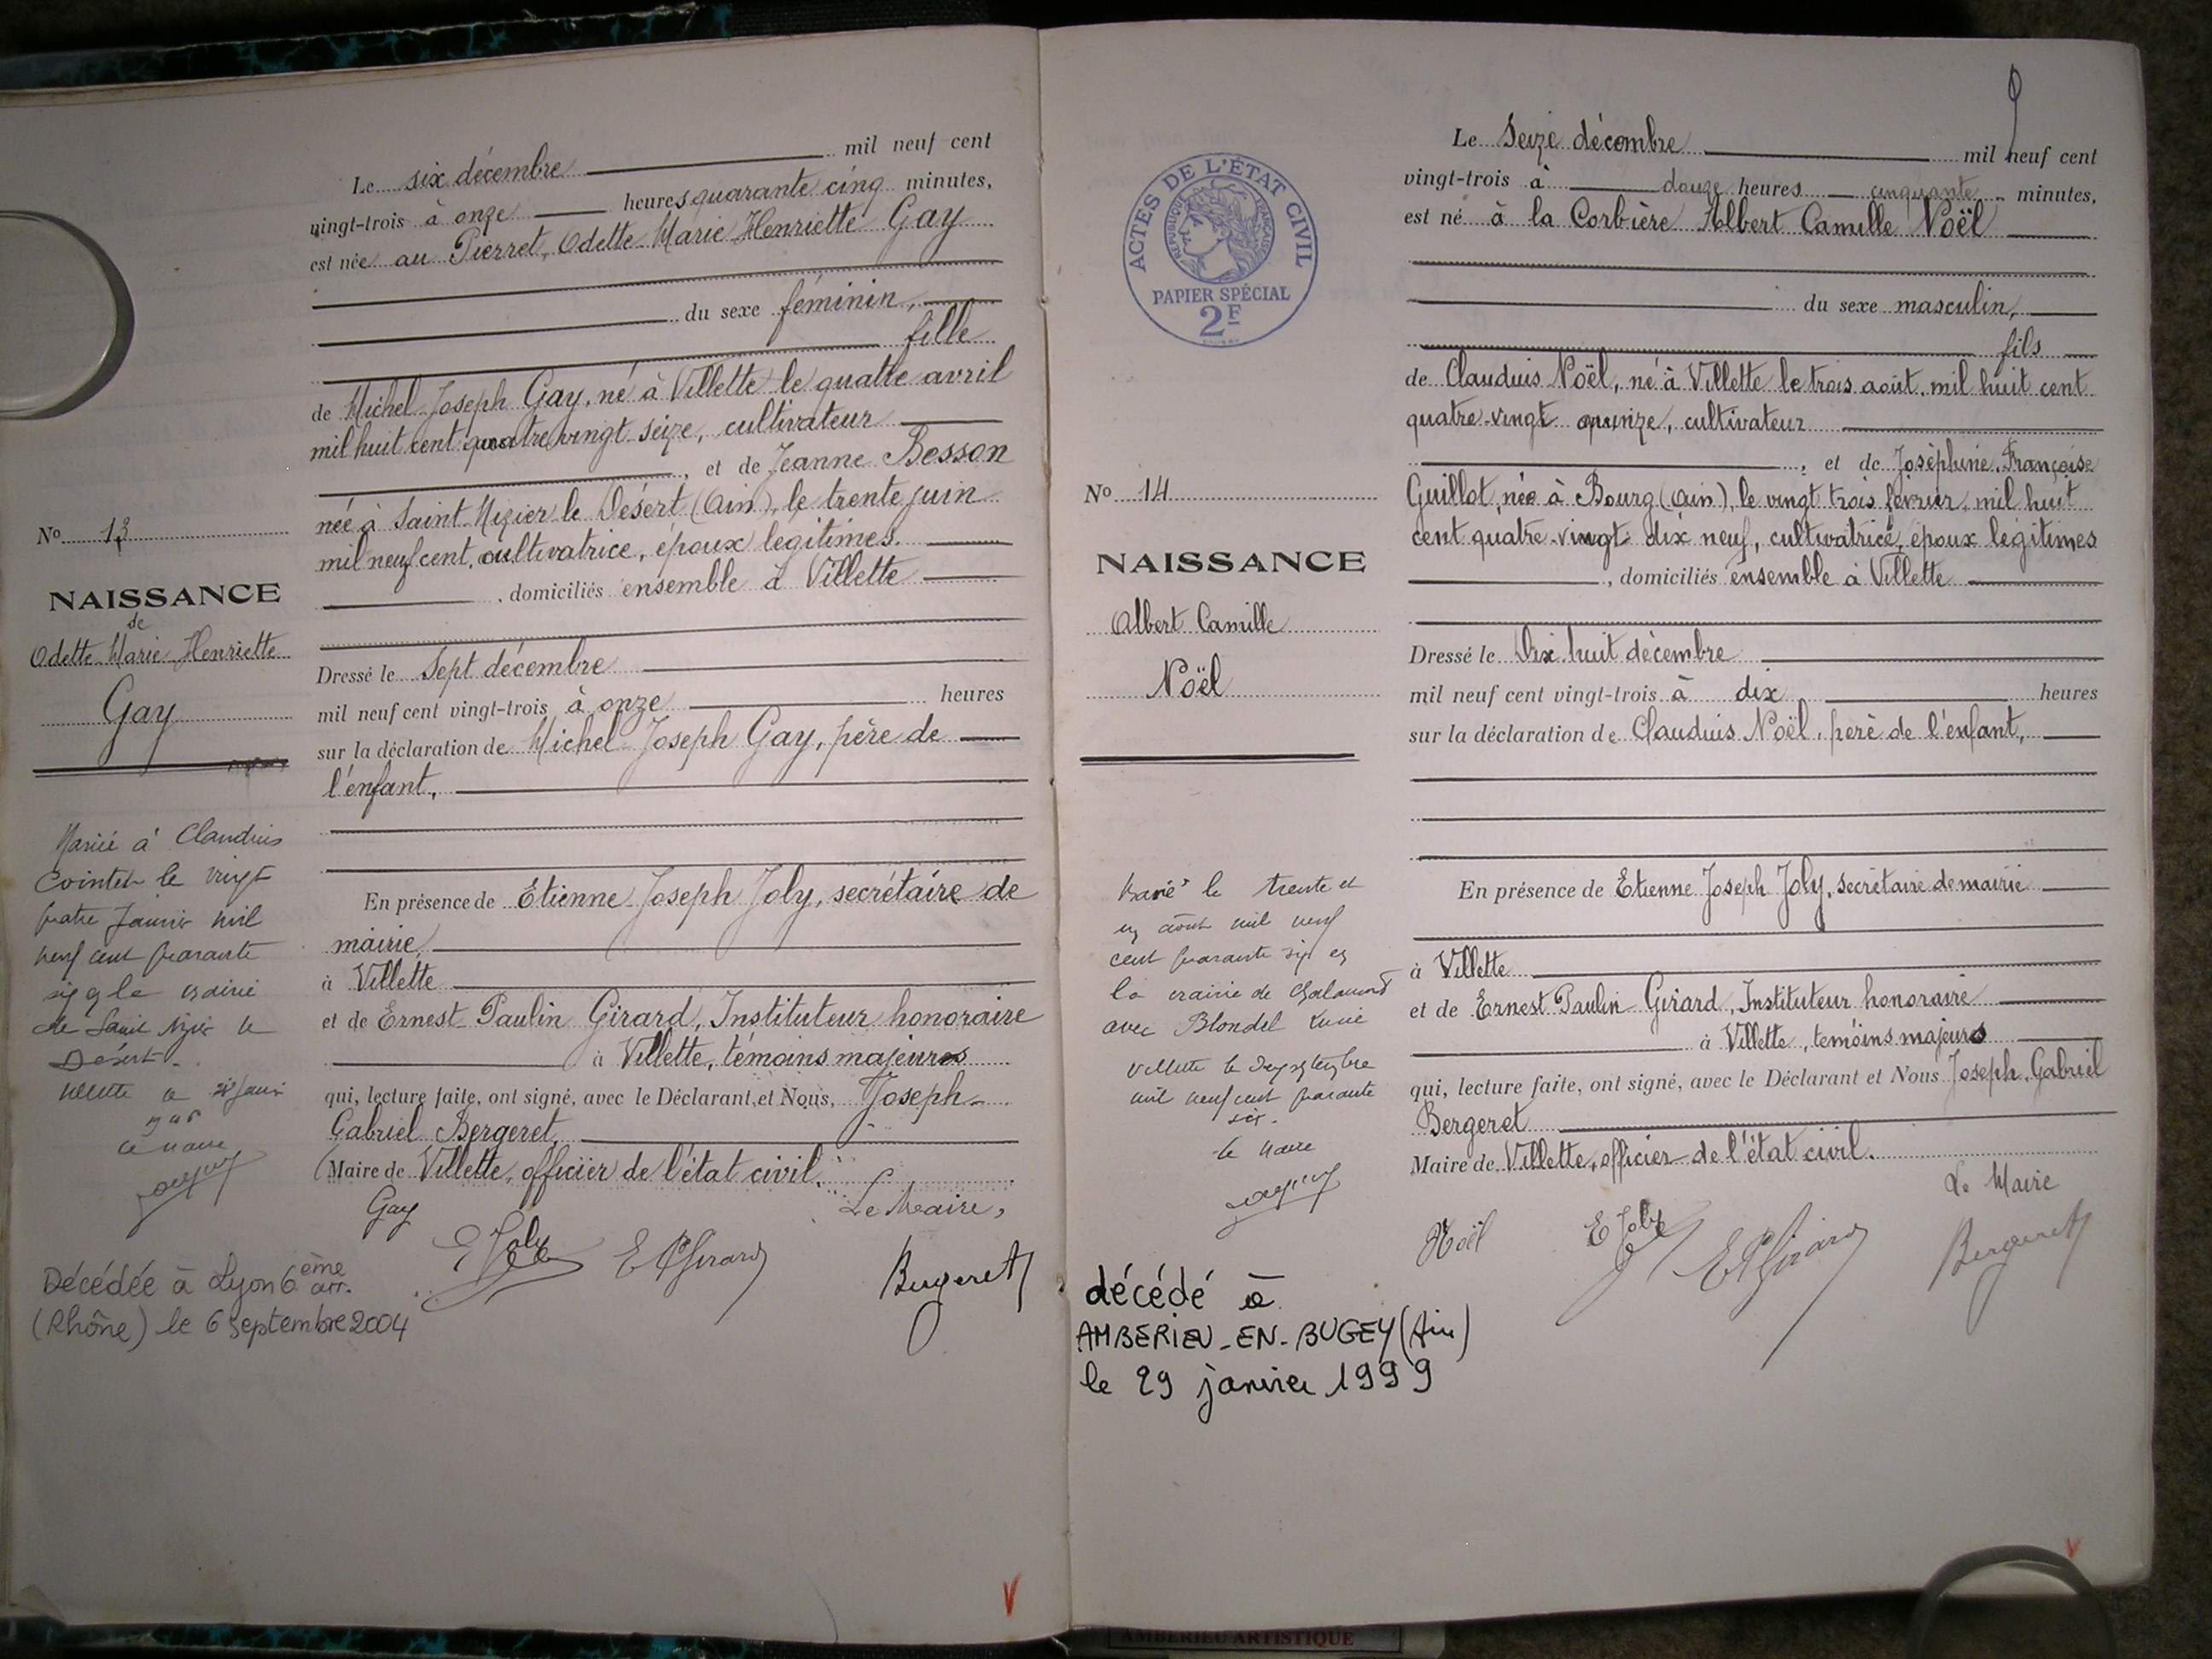 Le six décembre mil neuf cent
vingt-trois à onze heures quarante cinq minutes,
est née au Pierret, Odette Marie Henriette Gay
du sexe féminin,
fille
de Michel Joseph Gay, né à Villette le quatre avril
mil huit cent quatre vingt seize, cultivateur
, et de Jeanne Besson
née à Saint-Nizier le Désert (Ain), le trente juin
mil neuf cent, cultivatrice, époux légitimes.
, domiciliés ensemble à Villette
Dressé le Sept décembre
mil neuf cent vingt-trois à onze heures
sur la déclaration de Michel Joseph Gay, père de
l'enfant,
En présence de Etienne Joseph Joly, secrétaire de
mairie,
à Villette
et de Ernest Paulin Girard, Instituteur honoraire
à Villette, témoins majeurs
qui, lecture faite, ont signé, avec le Déclarant et Nous, Joseph
Gabriel Bergeret,
Maire de Villette, officier de l'état civil.
Gay
Le Maire,
E Joly
E P Girard
Bergeret
No 13
NAISSANCE
de
Odette Marie Henriette
Gay
Mariée à Claudius
Cointet le vingt
quatre Janvier mil
neuf cent quarante
six à la mairie
de Saint Nizier le
Désert.
Villette le
le maire
Décédée à Lyon 6ème arr.
(Rhône) le 6 Septembre 2004
V
ACTES DE L'ÉTAT CIVIL
RÉPUBLIQUE FRANÇAISE
PAPIER SPÉCIAL
2F
No 14
NAISSANCE
Albert Camille
Noël
Marié le trente et
un août mil neuf
cent quarante six en
la mairie de Chalamont
avec Blondel Lucie
Villette le
mil neuf cent quarante
six.
le Maire
décédé à
AMBERIEU-EN-BUGEY (Ain)
le 29 janvier 1999
Le Seize décembre mil neuf cent
vingt-trois à douze heures cinquante minutes,
est né à la Corbière Albert Camille Noël
du sexe masculin,
fils
de Claudius Noël, né à Villette le trois août mil huit cent
quatre-vingt quinze, cultivateur
, et de Joséphine Françoise
Guillot, née à Bourg (Ain), le vingt trois février mil huit
cent quatre-vingt dix neuf, cultivatrice, époux légitimes
, domiciliés ensemble à Villette
Dressé le Dix huit décembre
mil neuf cent vingt-trois à dix heures
sur la déclaration de Claudius Noël, père de l'enfant,
En présence de Etienne Joseph Joly, secrétaire de mairie
à Villette
et de Ernest Paulin Girard, Instituteur honoraire
à Villette, témoins majeurs
qui, lecture faite, ont signé, avec le Déclarant et Nous Joseph Gabriel
Bergeret
Maire de Villette, officier de l'état civil.
Le Maire
Noël
E Joly
E P Girard
Bergeret
V
AMBERIEU ARTISTIQUE